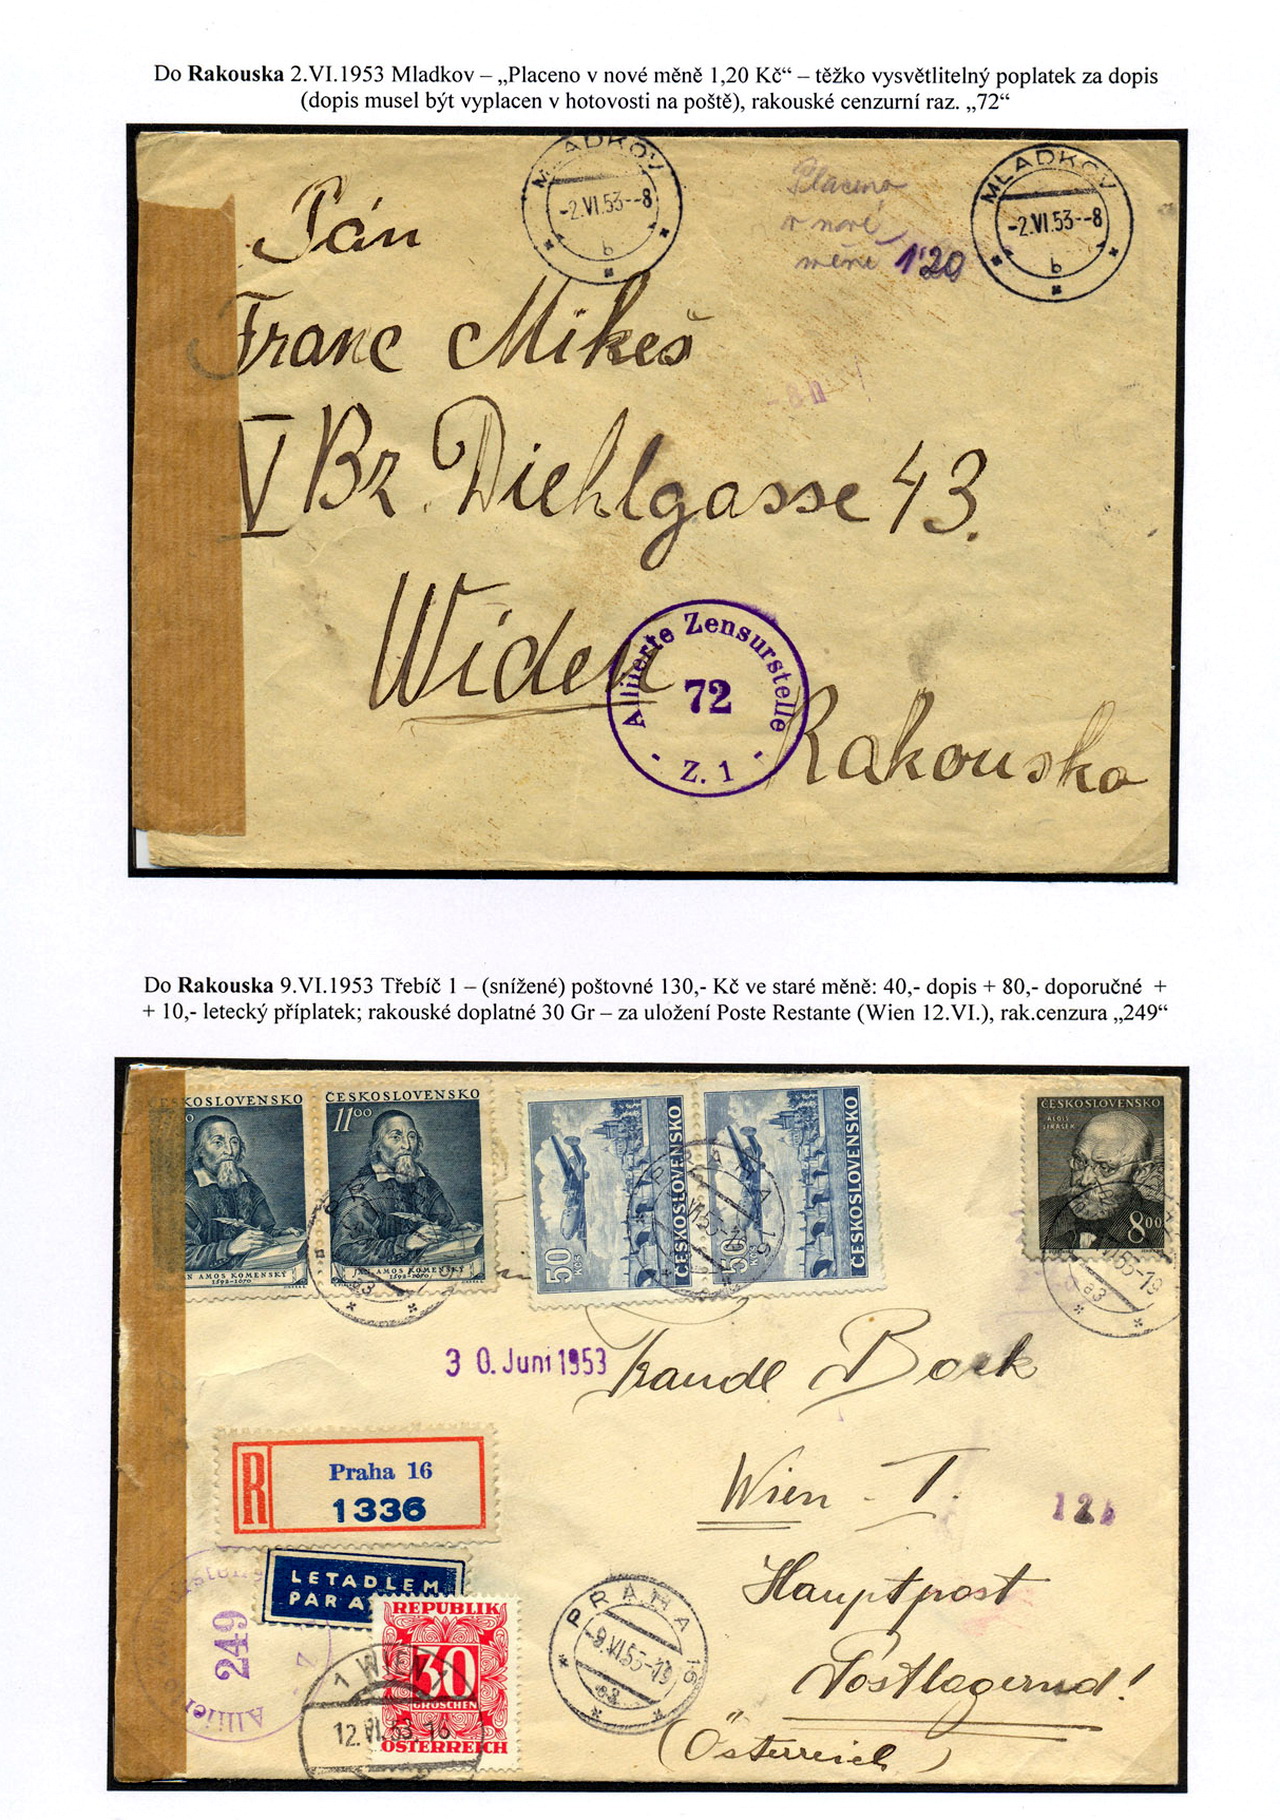 Do Rakouska 2.VI.1953 Mladkov – „Placeno v nové měně 1,20 Kč“ – těžko vysvětlitelný poplatek za dopis
(dopis musel být vyplacen v hotovosti na poště), rakouské cenzurní raz. „72“
MLADKOV
-2.VI.53--8
b
Placeno
v nové
měně 1'20
MLADKOV
-2.VI.53--8
b
Pán
Franc Mikeš
V Bz. Diehlgasse 43.
Widen
Rakousko
Alliierte Zensurstelle
72
- Z. 1 -
Do Rakouska 9.VI.1953 Třebíč 1 – (snížené) poštovné 130,- Kč ve staré měně: 40,- dopis + 80,- doporučné +
+ 10,- letecký příplatek; rakouské doplatné 30 Gr – za uložení Poste Restante (Wien 12.VI.), rak.cenzura „249“
ČESKOSLOVENSKO
JAN AMOS KOMENSKÝ
1592-1670
ČESKOSLOVENSKO
11 00
JAN AMOS KOMENSKÝ
1592-1670
50 Kčs
ČESKOSLOVENSKO
50 Kčs
ČESKOSLOVENSKO
PRAHA 16
ČESKOSLOVENSKO
ALOIS
JIRÁSEK
8 00
30. Juni 1953
Bock
Wien - I.
Hauptpost
Postlagernd!
(Österreich)
R
Praha 16
1336
LETADLEM
PAR A
249
REPUBLIK
30
GROSCHEN
ÖSTERREICH
1 WIEN 1
12.VI.53.16
PRAHA 16
-9.VI.53-19
a3